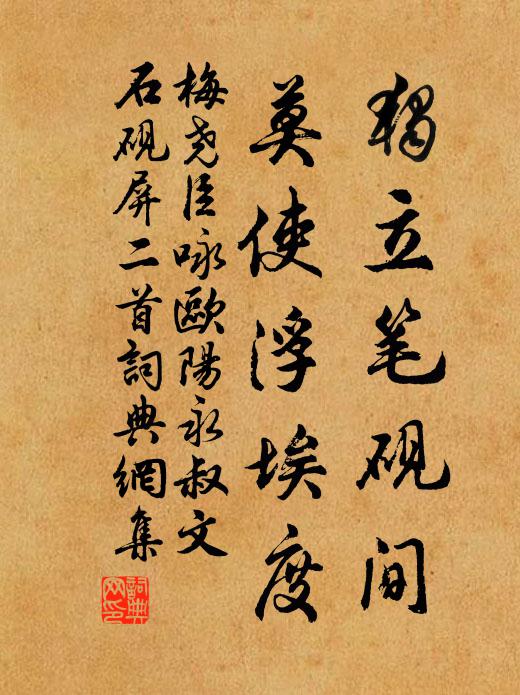 獨立笔硯間
莫使浮埃度
梅堯臣咏歐陽永叔文
石硯屏二首詞典網集
詞典網印